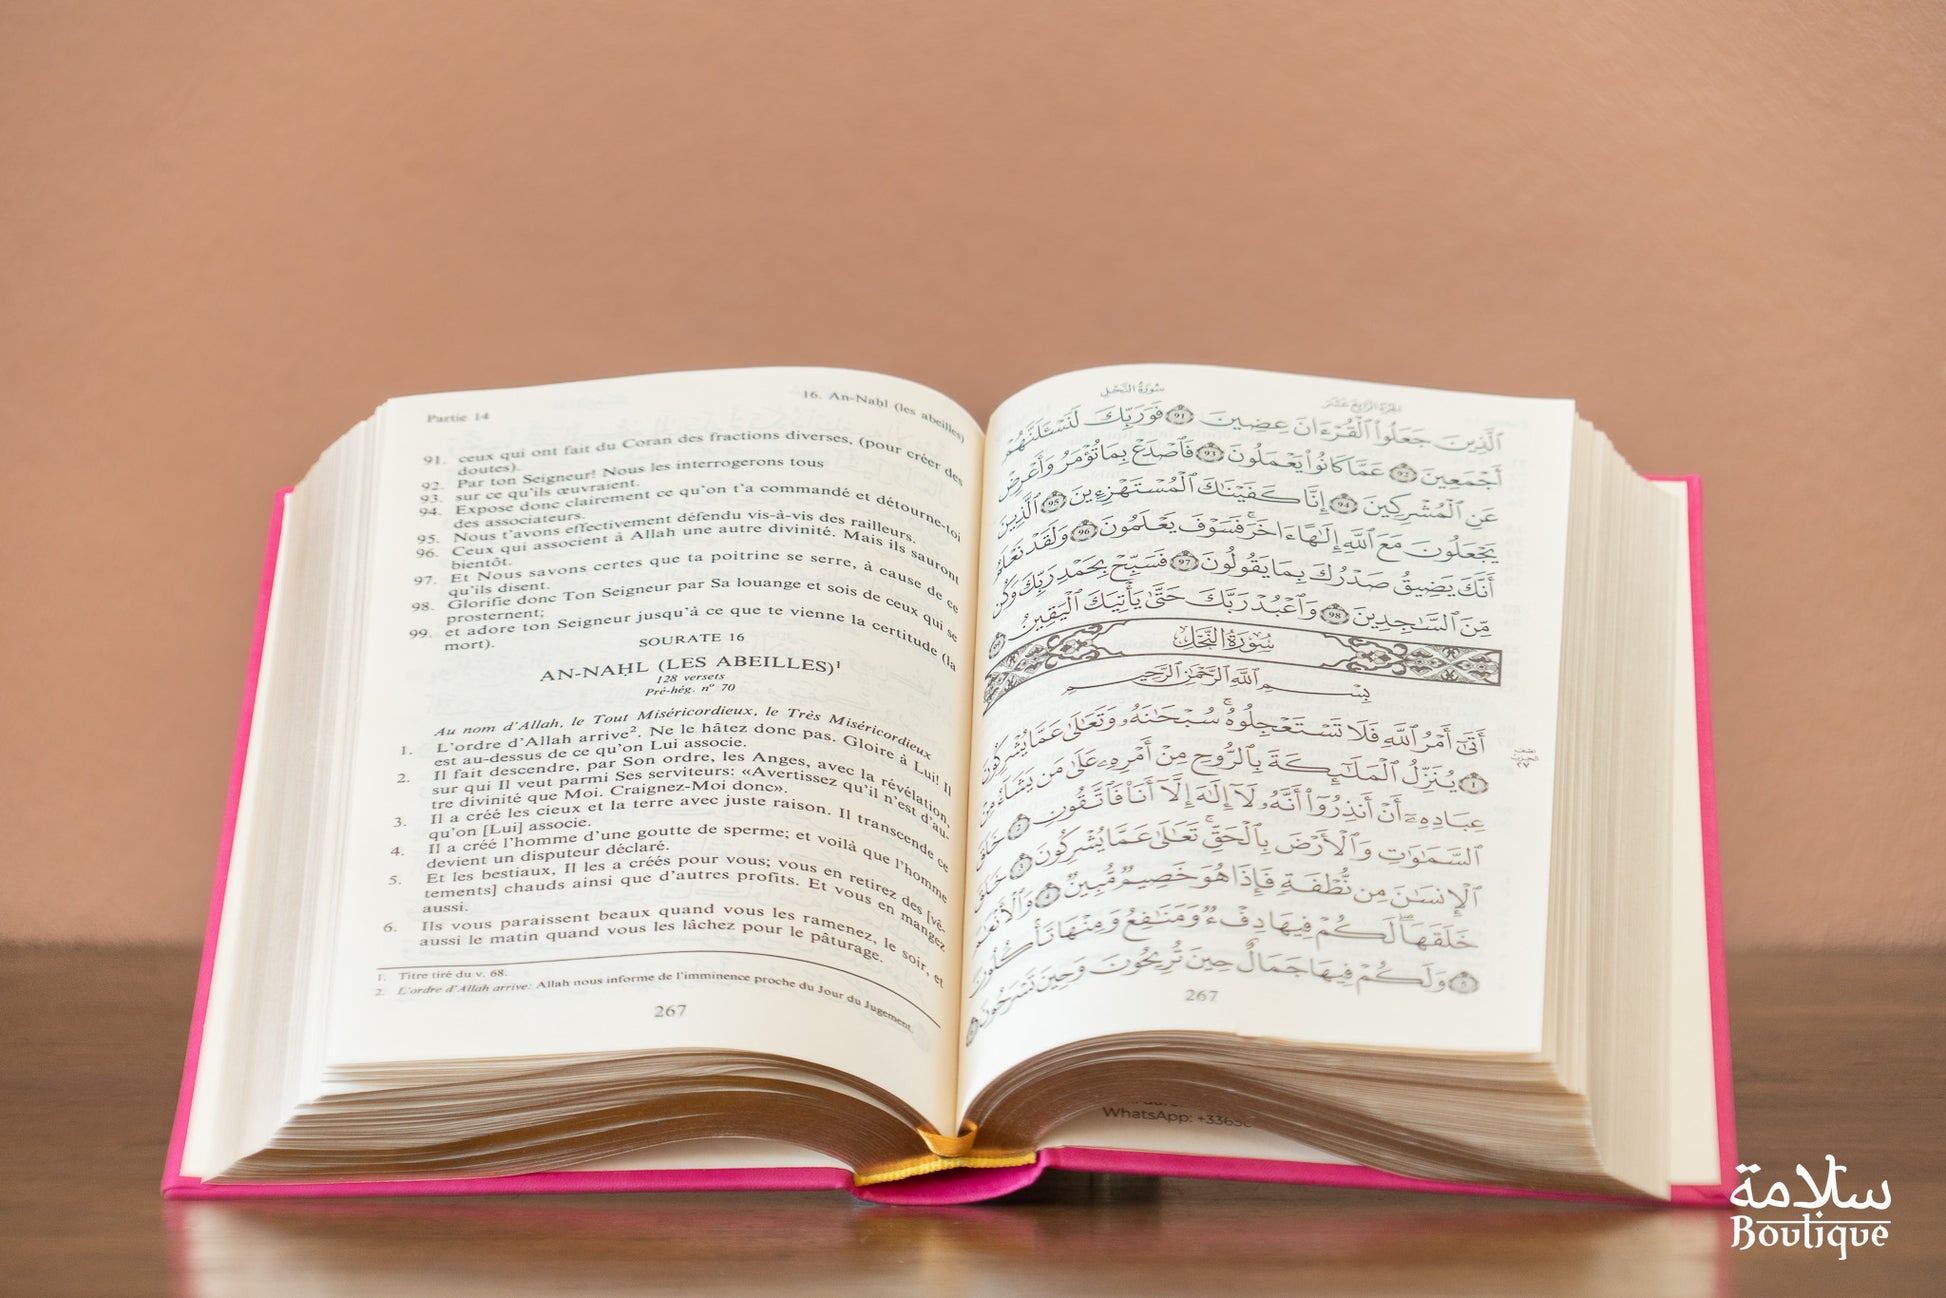 Partie 14
16. An-Naḥl (les abeilles)
91. ceux qui ont fait du Coran des fractions diverses, (pour créer des
doutes).
92. Par ton Seigneur! Nous les interrogerons tous
93. sur ce qu'ils œuvraient.
94. Expose donc clairement ce qu'on t'a commandé et détourne-toi
des associateurs.
95. Nous t'avons effectivement défendu vis-à-vis des railleurs.
96. Ceux qui associent à Allah une autre divinité. Mais ils sauront
bientôt.
97. Et Nous savons certes que ta poitrine se serre, à cause de ce
qu'ils disent.
98. Glorifie donc Ton Seigneur par Sa louange et sois de ceux qui se
prosternent;
99. et adore ton Seigneur jusqu'à ce que te vienne la certitude (la
mort).
SOURATE 16
AN-NAḤL (LES ABEILLES)¹
128 versets
Pré-hég. n° 70
Au nom d'Allah, le Tout Miséricordieux, le Très Miséricordieux
1. L'ordre d'Allah arrive². Ne le hâtez donc pas. Gloire à Lui! Il
est au-dessus de ce qu'on Lui associe.
2. Il fait descendre, par Son ordre, les Anges, avec la révélation,
sur qui Il veut parmi Ses serviteurs: «Avertissez qu'il n'est d'au-
tre divinité que Moi. Craignez-Moi donc».
3. Il a créé les cieux et la terre avec juste raison. Il transcende ce
qu'on [Lui] associe.
4. Il a créé l'homme d'une goutte de sperme; et voilà que l'homme
devient un disputeur déclaré.
5. Et les bestiaux, Il les a créés pour vous; vous en retirez des [vê-
tements] chauds ainsi que d'autres profits. Et vous en mangez
aussi.
6. Ils vous paraissent beaux quand vous les ramenez, le soir, et
aussi le matin quand vous les lâchez pour le pâturage.
1. Titre tiré du v. 68.
2. L'ordre d'Allah arrive: Allah nous informe de l'imminence proche du Jour du Jugement.
267
سُورَةُ النَّحْلِ
الجزء الرابع عشر
ٱلَّذِينَ جَعَلُوا۟ ٱلْقُرْءَانَ عِضِينَ ٩١ فَوَرَبِّكَ لَنَسْـَٔلَنَّهُمْ
أَجْمَعِينَ ٩٢ عَمَّا كَانُوا۟ يَعْمَلُونَ ٩٣ فَٱصْدَعْ بِمَا تُؤْمَرُ وَأَعْرِضْ
عَنِ ٱلْمُشْرِكِينَ ٩٤ إِنَّا كَفَيْنَٰكَ ٱلْمُسْتَهْزِءِينَ ٩٥ ٱلَّذِينَ
يَجْعَلُونَ مَعَ ٱللَّهِ إِلَٰهًا ءَاخَرَ ۚ فَسَوْفَ يَعْلَمُونَ ٩٦ وَلَقَدْ نَعْلَمُ
أَنَّكَ يَضِيقُ صَدْرُكَ بِمَا يَقُولُونَ ٩٧ فَسَبِّحْ بِحَمْدِ رَبِّكَ وَكُن
مِّنَ ٱلسَّٰجِدِينَ ٩٨ وَٱعْبُدْ رَبَّكَ حَتَّىٰ يَأْتِيَكَ ٱلْيَقِينُ ٩٩
سُورَةُ النَّحْلِ
بِسْمِ ٱللَّهِ ٱلرَّحْمَٰنِ ٱلرَّحِيمِ
أَتَىٰٓ أَمْرُ ٱللَّهِ فَلَا تَسْتَعْجِلُوهُ ۚ سُبْحَٰنَهُۥ وَتَعَٰلَىٰ عَمَّا يُشْرِكُونَ
١ يُنَزِّلُ ٱلْمَلَٰٓئِكَةَ بِٱلرُّوحِ مِنْ أَمْرِهِۦ عَلَىٰ مَن يَشَآءُ مِنْ
عِبَادِهِۦٓ أَنْ أَنذِرُوٓا۟ أَنَّهُۥ لَآ إِلَٰهَ إِلَّآ أَنَا۠ فَٱتَّقُونِ ٢ خَلَقَ
ٱلسَّمَٰوَٰتِ وَٱلْأَرْضَ بِٱلْحَقِّ ۚ تَعَٰلَىٰ عَمَّا يُشْرِكُونَ ٣ خَلَقَ
ٱلْإِنسَٰنَ مِن نُّطْفَةٍ فَإِذَا هُوَ خَصِيمٌ مُّبِينٌ ٤ وَٱلْأَنْعَٰمَ
خَلَقَهَا ۗ لَكُمْ فِيهَا دِفْءٌ وَمَنَٰفِعُ وَمِنْهَا تَأْكُلُونَ
٥ وَلَكُمْ فِيهَا جَمَالٌ حِينَ تُرِيحُونَ وَحِينَ تَسْرَحُونَ ٦
267
WhatsApp: +3365
سلامة
Boutique